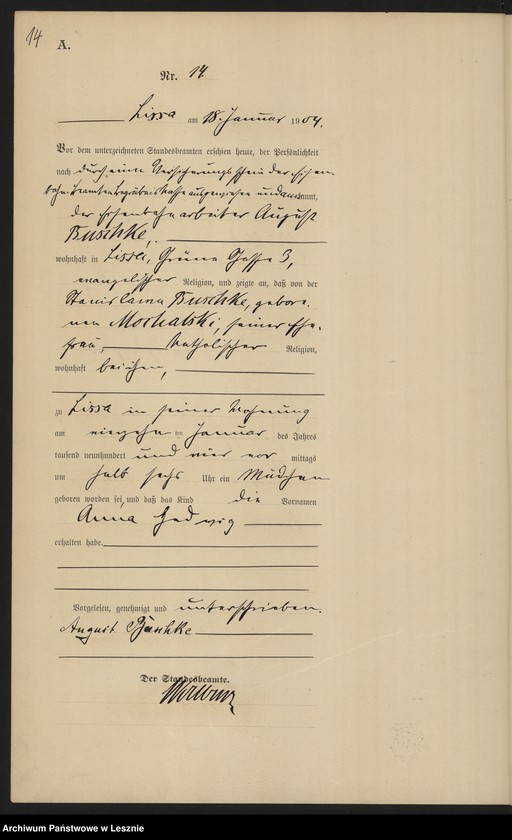 14
A.
Nr. 14
Lissa am 18. Januar 1904.
Vor dem unterzeichneten Standesbeamten erschien heute, der Persönlichkeit
nach durch einen Versicherungsschein der Eisen-
bahn Beamten Begräbnis Kasse ausgewiesen und anerkannt,
der Eisenbahnarbeiter August
Buschke,
wohnhaft in Lissa, Grüne Gasse 3,
evangelischer Religion, und zeigte an, daß von der
Stanislawa Buschke, gebore-
nen Mochalski, seiner Ehe-
frau, katholischer Religion,
wohnhaft bei ihm,
zu Lissa in seiner Wohnung
am vierzehnten Januar des Jahres
tausend neunhundert und vier vor mittags
um halb sechs Uhr ein Mädchen
geboren worden sei, und daß das Kind die Vornamen
Anna Hedwig
erhalten habe.
Vorgelesen, genehmigt und unterschrieben.
August Buschke
Der Standesbeamte.
Archiwum Państwowe w Lesznie